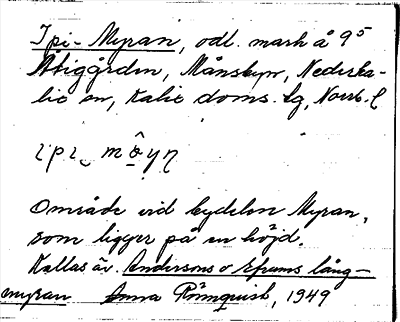 Ipi-Myran, odl. mark å 9⁵
Åbiggården, Månsbyn, Nederka-
lix sn, Kalix doms. lg, Norrb. l
ɩpɩ‿ mô̤yn
Område vid bydelen Myran,
som ligger på en höjd.
Kallas äv. Anderssons o Efraims lång-
myran Anna Rönnqvist, 1949